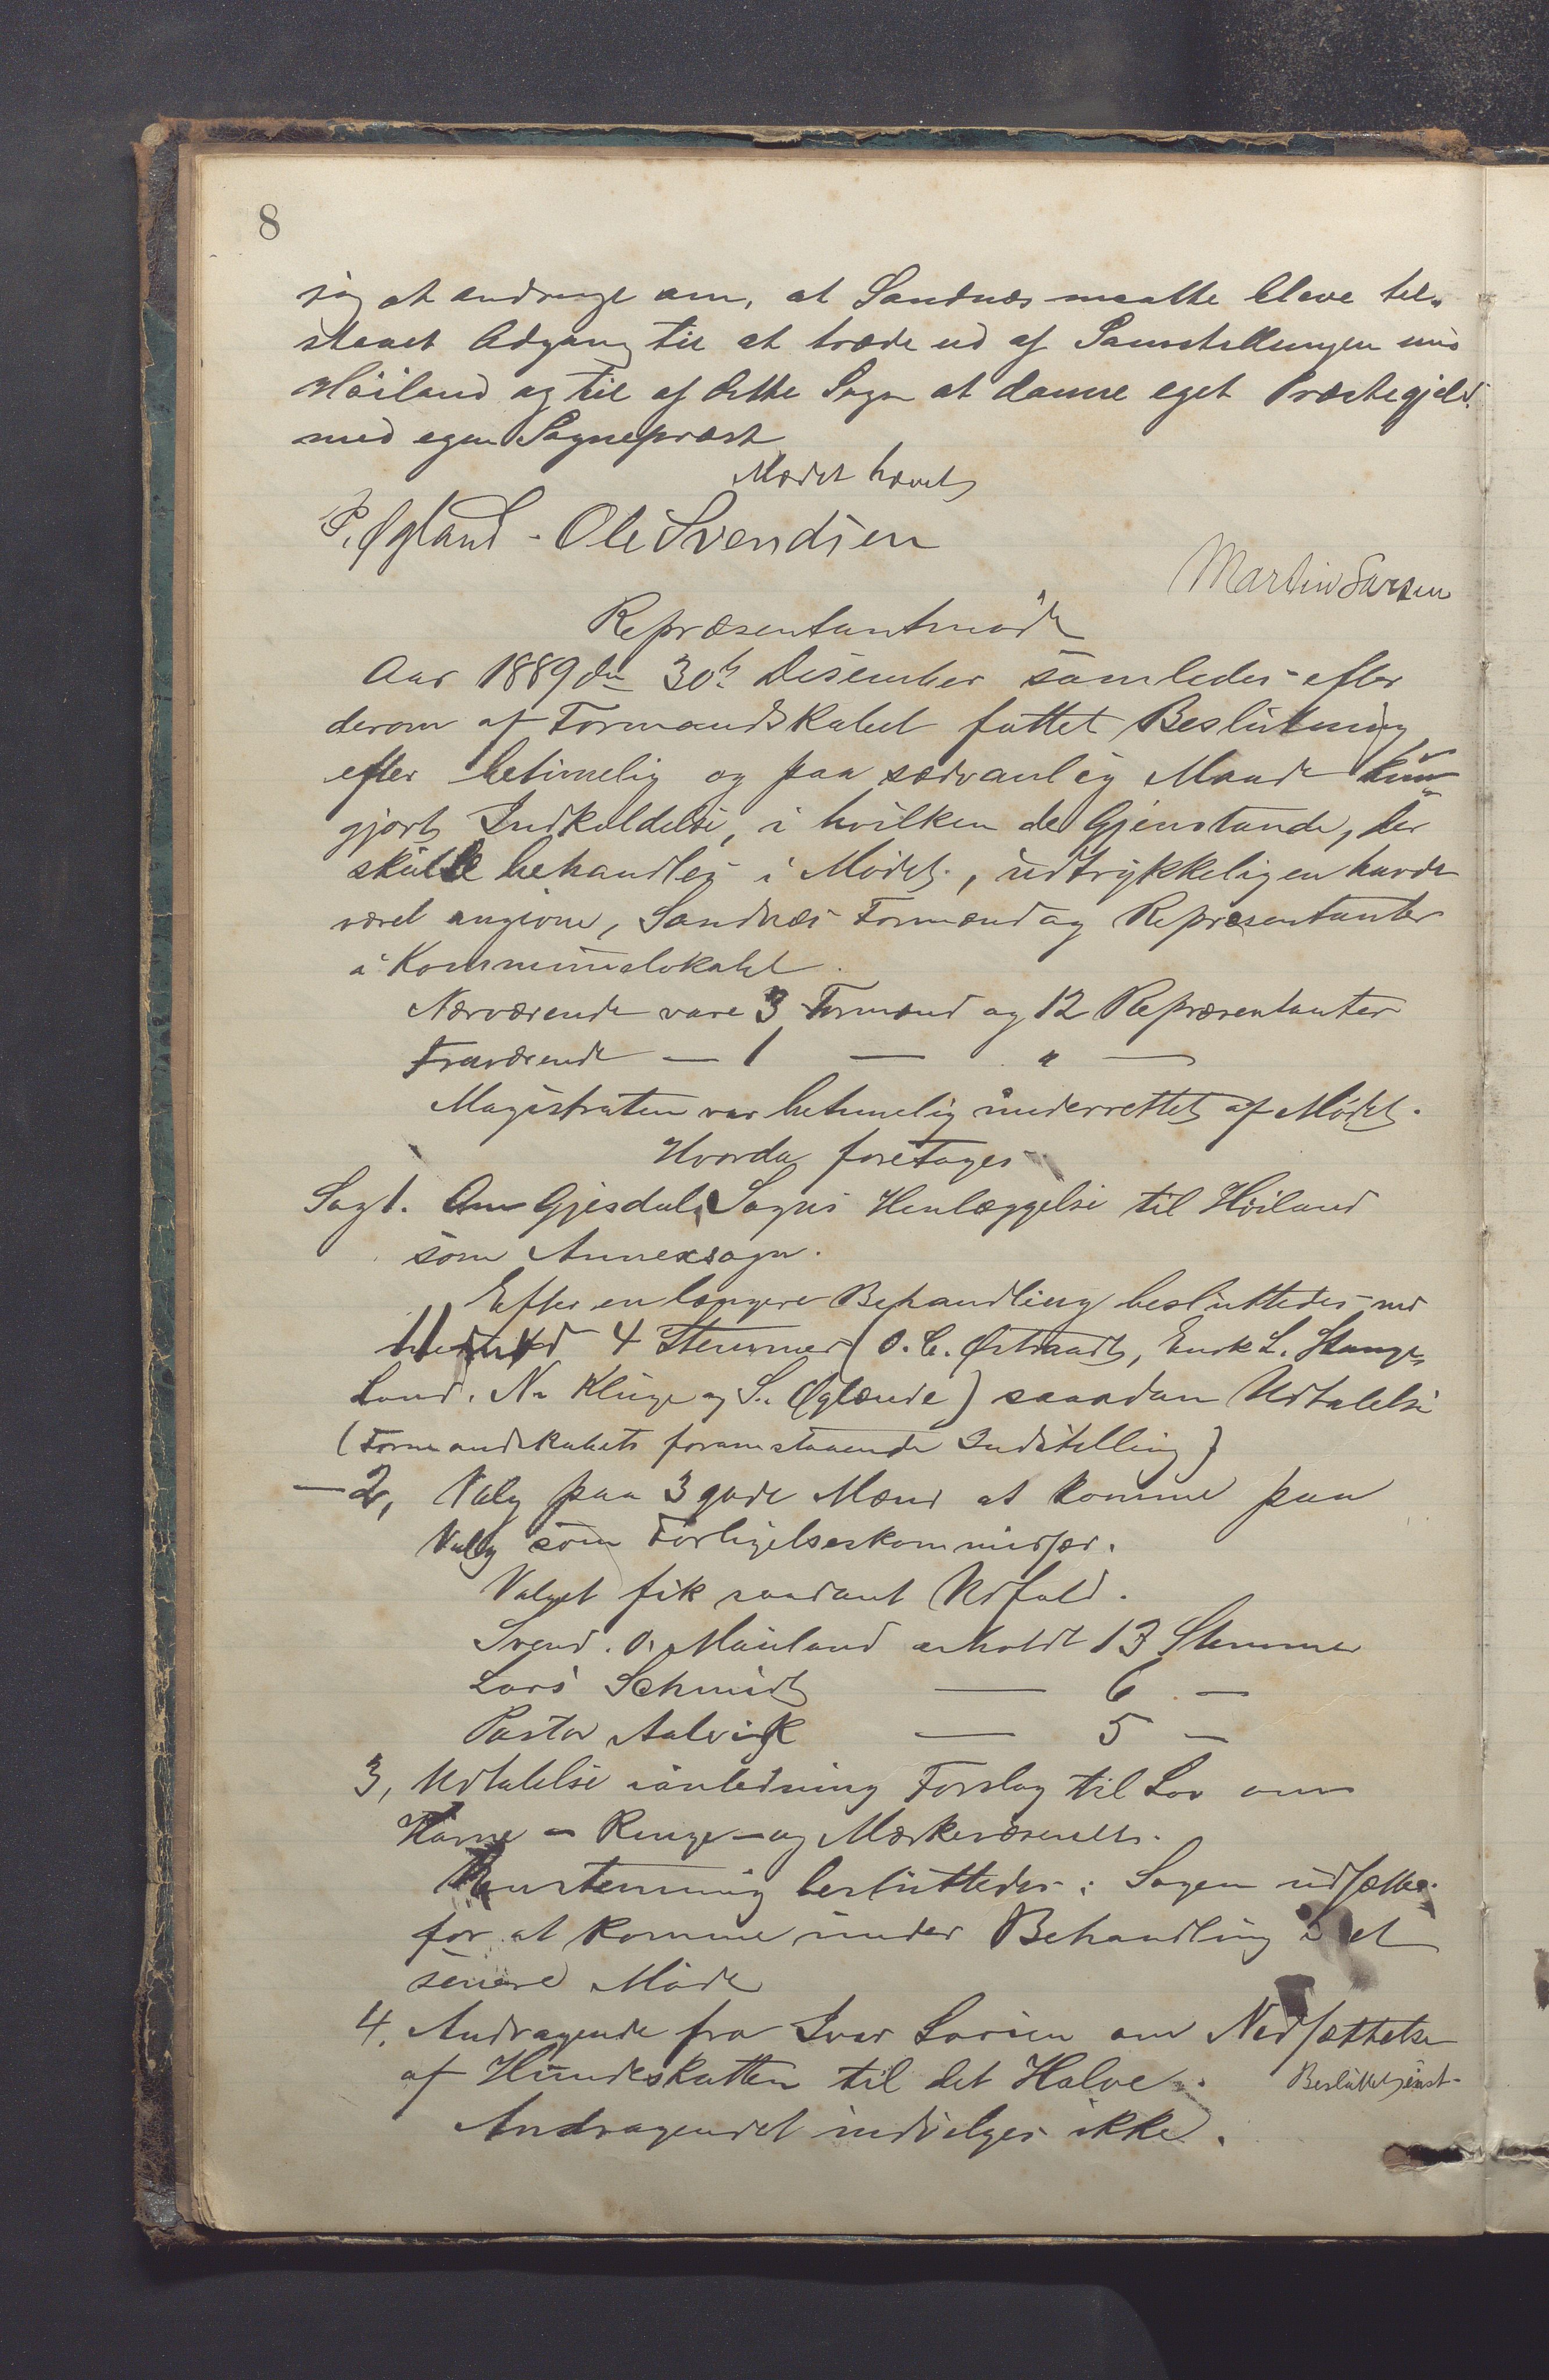 8
sig at andrage om, at Sandnæs maatte blive til-
staaet Adgang til at træde ud af Samstillingen med
Høiland og til af dette Sogn at danne eget Præstegjeld
med egen Sognepræst
Mødet hævet
P. Øgland - Ole Svendsen
Martin Larsen
Repræsentantmøde
Aar 1889 den 30te Desember samledes efter
derom af Formandskabet fattet Beslutning
efter betimelig og paa sædvanlig Maade kund-
gjort Indkaldelse, i hvilken de Gjenstande, der
skulle behandles i Mødet, udtrykkeligen havde
været angivne, Sandnæs Formænd og Repræsentanter
i Kommunelokalet.
Nærværende vare 3 Formænd og 12 Repræsentanter
Fraværende — 1 — " —
Magistraten var betimelig underrettet af Mødet.
Hvorda foretages
Sag 1. Om Gjesdals Sogns Henlæggelse til Høiland
som Annexsogn.
Efter en længere Behandling besluttedes med
11 mod 4 Stemmer (O. C. Østraadt, Enok L. Stange-
land, N. Kluge og S. Øglænde) saadan Udtalelse
(Formandskabets foranstaaende Indstilling)
— 2, Valg paa 3 gode Mænd at komme paa
Valg som Forligelseskommissær.
Valget fik saadant Udfald.
Svend. O. Mauland erholdt 13 Stemmer
Lars Schmidt — 6 —
Pastor Aalvik — 5 —
3, Udtalelse i anledning Forslag til Lov om
Havne - Ringe - og Mærkevæsenet.
Enstemmig besluttedes: Sagen udsættes
for at komme under Behandling i et
senere Møde
4. Andragende fra Ivar Larsen om Nedsættelse
af Hundeskatten til det Halve. Besluttet enst-
Andragendet indvilges ikke.